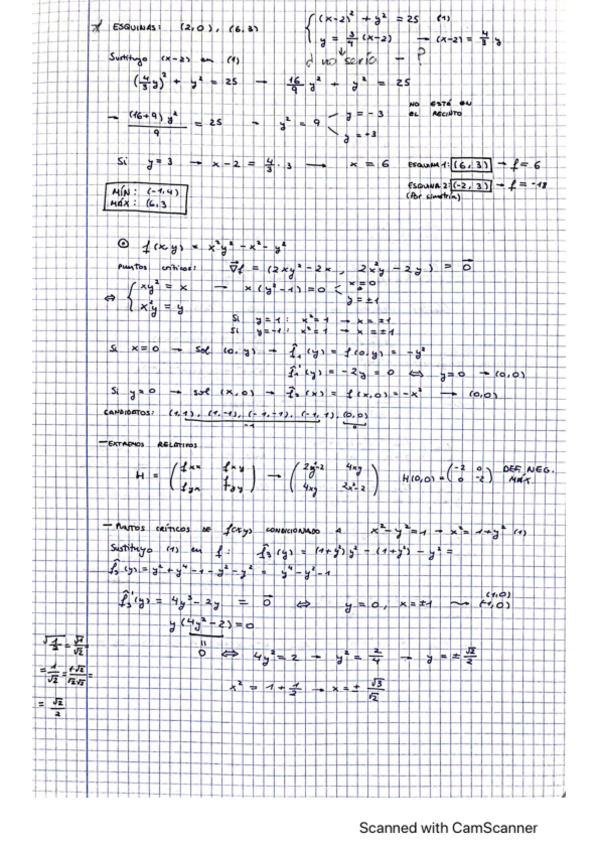 * ESQUINAS: (2,0), (6,3)
{ (x-2)² + y² = 25 (1)
y = 3/4 (x-2) → (x-2) = 4/3 y
¿ no sería - ?
Sustituyo (x-2) en (1)
(4/3 y)² + y² = 25 → 16/9 y² + y² = 25
→ (16+9) y² / 9 = 25 → y² = 9 < y = -3 NO ESTÁ EN EL RECINTO
y = +3
Si y = 3 → x-2 = 4/3 · 3 → x = 6
ESQUINA 1: (6,3) → f = 6
ESQUINA 2: (-2,3) → f = -18
(Por simetría)
MÍN: (-1,4)
MÁX: (6,3
⊙ f(x,y) = x²y² - x² - y²
PUNTOS CRÍTICOS: ∇f = (2xy² - 2x, 2x²y - 2y) = 0
⇔ { xy² = x → x(y²-1) = 0 < x = 0
y = ±1
x²y = y
Si y = 1: x² = 1 → x = ±1
Si y = -1: x² = 1 → x = ±1
Si x = 0 → sol (0,y) → f₁(y) = f(0,y) = -y²
f₁'(y) = -2y = 0 ⇔ y = 0 → (0,0)
Si y = 0 → sol (x,0) → f₂(x) = f(x,0) = -x² → (0,0)
CANDIDATOS: (1,1), (1,-1), (-1,-1), (-1,1), (0,0)
-1 0
- EXTREMOS RELATIVOS
H = ( fxx fxy fyx fyy ) → ( 2y²-2 4xy 4xy 2x²-2 ) H(0,0) = ( -2 0 0 -2 ) DEF. NEG. MÁX.
- PUNTOS CRÍTICOS DE f(x,y) CONDICIONADO A x² - y² = 1 → x² = 1+y² (1)
Sustituyo (1) en f: f₃(y) = (1+y²)y² - (1+y²) - y² =
f₃(y) = y² + y⁴ - 1 - y² - y² = y⁴ - y² - 1
f₃'(y) = 4y³ - 2y = 0 ⇔ y = 0, x = ±1 ~ (1,0) (-1,0)
y(4y²-2) = 0
0 ⇔ 4y² = 2 → y² = 2/4 → y = ± √2/2
x² = 1 + 1/2 → x = ± √3/√2
√(1/2) = √1/√2 =
= 1/√2 = 1·√2/√2√2 =
= √2/2
Scanned with CamScanner